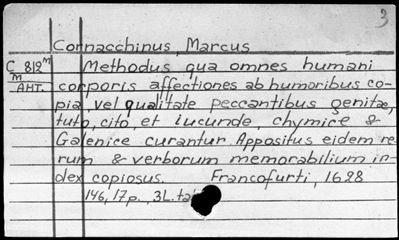 3
Cornacchinus, Marcus
C 812m Methodus qua omnes humani
m
AHT. corporis affectiones ab humoribus co-
pia, vel qualitate peccantibus genitae,
tuto, cito, et iucunde, chymice &
Galenice curantur. Appositus eidem re-
rum & verborum memorabilium in-
dex copiosus. Francofurti, 1628
146, 17 p., 3 L.